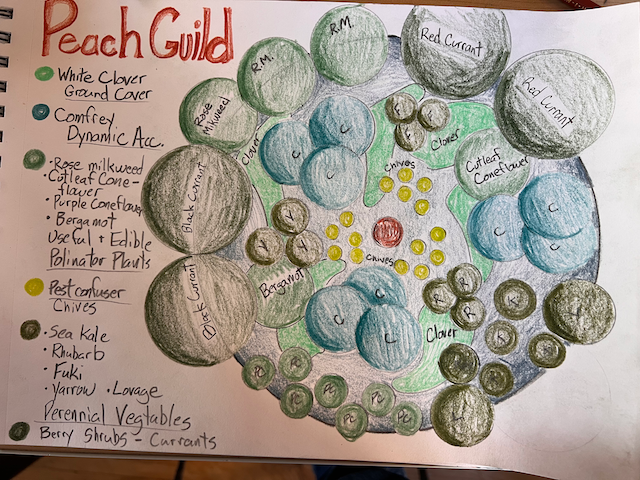 Peach Guild
White Clover
Ground Cover
Comfrey
Dynamic Acc.
• Rose milkweed
• Cutleaf Cone-
flower
• Purple Coneflower
• Bergamot
Useful + Edible
Polinator Plants
Pest confuser
Chives
• Sea Kale
• Rhubarb
• Fuki
• Yarrow • Lovage
Perennial Vegtables
Berry Shrubs - Currants
R.M.
R.M.
Rose
Milkweed
Red Currant
Red Currant
Black Currant
Black Currant
Clover
Clover
Cutleaf
Coneflower
Chives
Chives
Bergamot
Clover
C
C
C
C
C
C
C
C
C
F
F
F
Y
Y
Y
R
R
R
R
R
PC
PC
PC
PC
PC
PC
PC
L